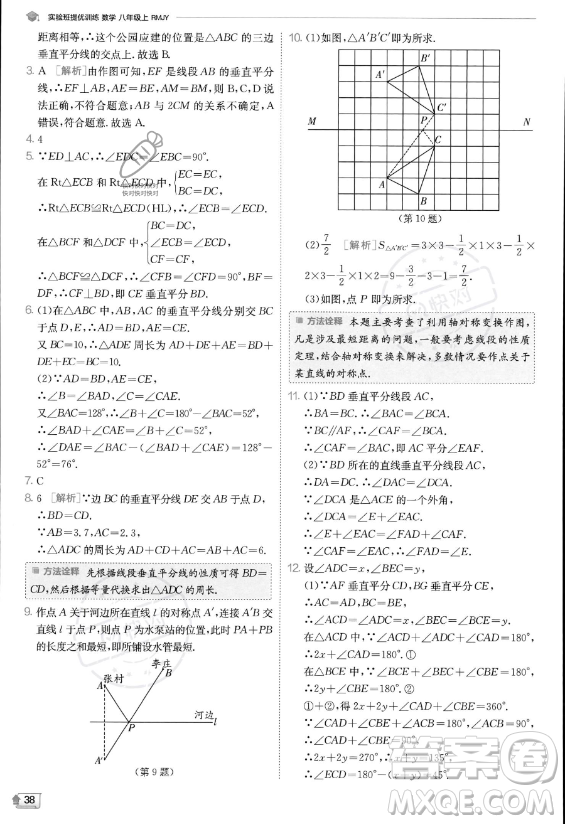 实验班提优训练 数学 八年级上 RMJY
距离相等,∴这个公园应建的位置是△ABC的三边
垂直平分线的交点上.故选B.
3. A [解析]由作图可知,EF是线段AB的垂直平分
线,∴EF⊥AB,AE=BE,AM=BM,故B、C、D说
法正确,不符合题意;AB与2CM的关系不确定,A
错误,符合题意.故选A.
4. 4
5. ∵ED⊥AC,∴∠EDC=∠EBC=90°.
在Rt△ECB和Rt△ECD中,{EC=EC,
BC=DC.
∴Rt△ECB≌Rt△ECD(HL),∴∠ECB=∠ECD.
在△BCF和△DCF中,{BC=DC,
∠ECB=∠ECD,
CF=CF,
∴△BCF≌△DCF,∴∠BFC=∠DFC=90°,
∴BF=DF,即CE垂直平分BD.
6. (1)∵AB,AC的垂直平分线分别交BC
于点D,E,∴AD=BD,AE=CE.
又BC=10,∴△ADE周长为AD+DE+AE=BD+
DE+EC=BC=10.
(2)∵AD=BD,AE=CE,
∴∠B=∠BAD,∠C=∠CAE.
又∠BAC=128°,∴∠B+∠C=180°-∠BAC=52°,
∴∠DAE=∠BAC-(∠BAD+∠CAE)=128°-
52°=76°.
7. C
8. 6 [解析]∵边BC的垂直平分线DE交AB于点D,
∴BD=CD.
∵AB=3.7,AC=2.3,
∴△ADC的周长为AD+CD+AC=AB+AC=6.
方法诠释 先根据线段垂直平分线的性质可得BD=
CD,然后根据等量代换求出△ADC的周长.
9. 作点A关于河边所在直线l的对称点A′,连接A′B交
直线l于点P,则点P为水泵站的位置,此时PA+PB
的长度之和最短,即所铺设水管最短.
李庄
B
张村
A
P
河边
l
A′
(第9题)
38
10. (1)如图,△A′B′C′即为所求.
B′
A′
C′
M
N
P
C
A
B
(第10题)
(2) 7/2 [解析]S△A′B′C′=3×3-1/2×1×3-1/2×
2×3-1/2×1×2=9-3/2-3-1=7/2.
(3)如图,点P即为所求.
方法诠释 本题主要考查了利用轴对称变换作图,
凡是涉及最短距离的问题,一般要考虑线段的性质
定理,结合轴对称变换来解决,多数情况要作点关于
某直线的对称点.
11. (1)∵BD垂直平分线段AC,
∴BA=BC.∴∠BAC=∠BCA.
∵BC∥AF,∴∠CAF=∠BCA,
∴∠CAF=∠BAC,即AC平分∠EAF.
(2)∵BD的垂直平分线段AC,
∴DA=DC,∴∠DAC=∠DCA.
∵∠DCA是△ACE的一个外角,
∴∠DCA=∠E+∠EAC,
∴∠DAC=∠E+∠EAC.
∵∠DAC=∠CAF+∠DAF,∠CAF=∠EAC,
∴∠DAF=∠E.
12. 设∠ADC=x,∠BEC=y,
∵AF垂直平分CD,BG垂直平分CE,
∴∠ACD=∠ADC=x,∠BCE=∠BEC=y.
在△ACD中,∠ACD+∠ADC+∠CAD=180°,
∴2x+∠CAD=180°.①
在△BCE中,∠BCE+∠BEC+∠CBE=180°,
∴2y+∠CBE=180°.②
①+②,得2x+2y+∠CAD+∠CBE=360°.
∵∠CAD+∠CBE=90°,
∴2x+2y=270°,∴x+y=135°,
∴∠ECD=180°-(x+y)=45°.
答案圈